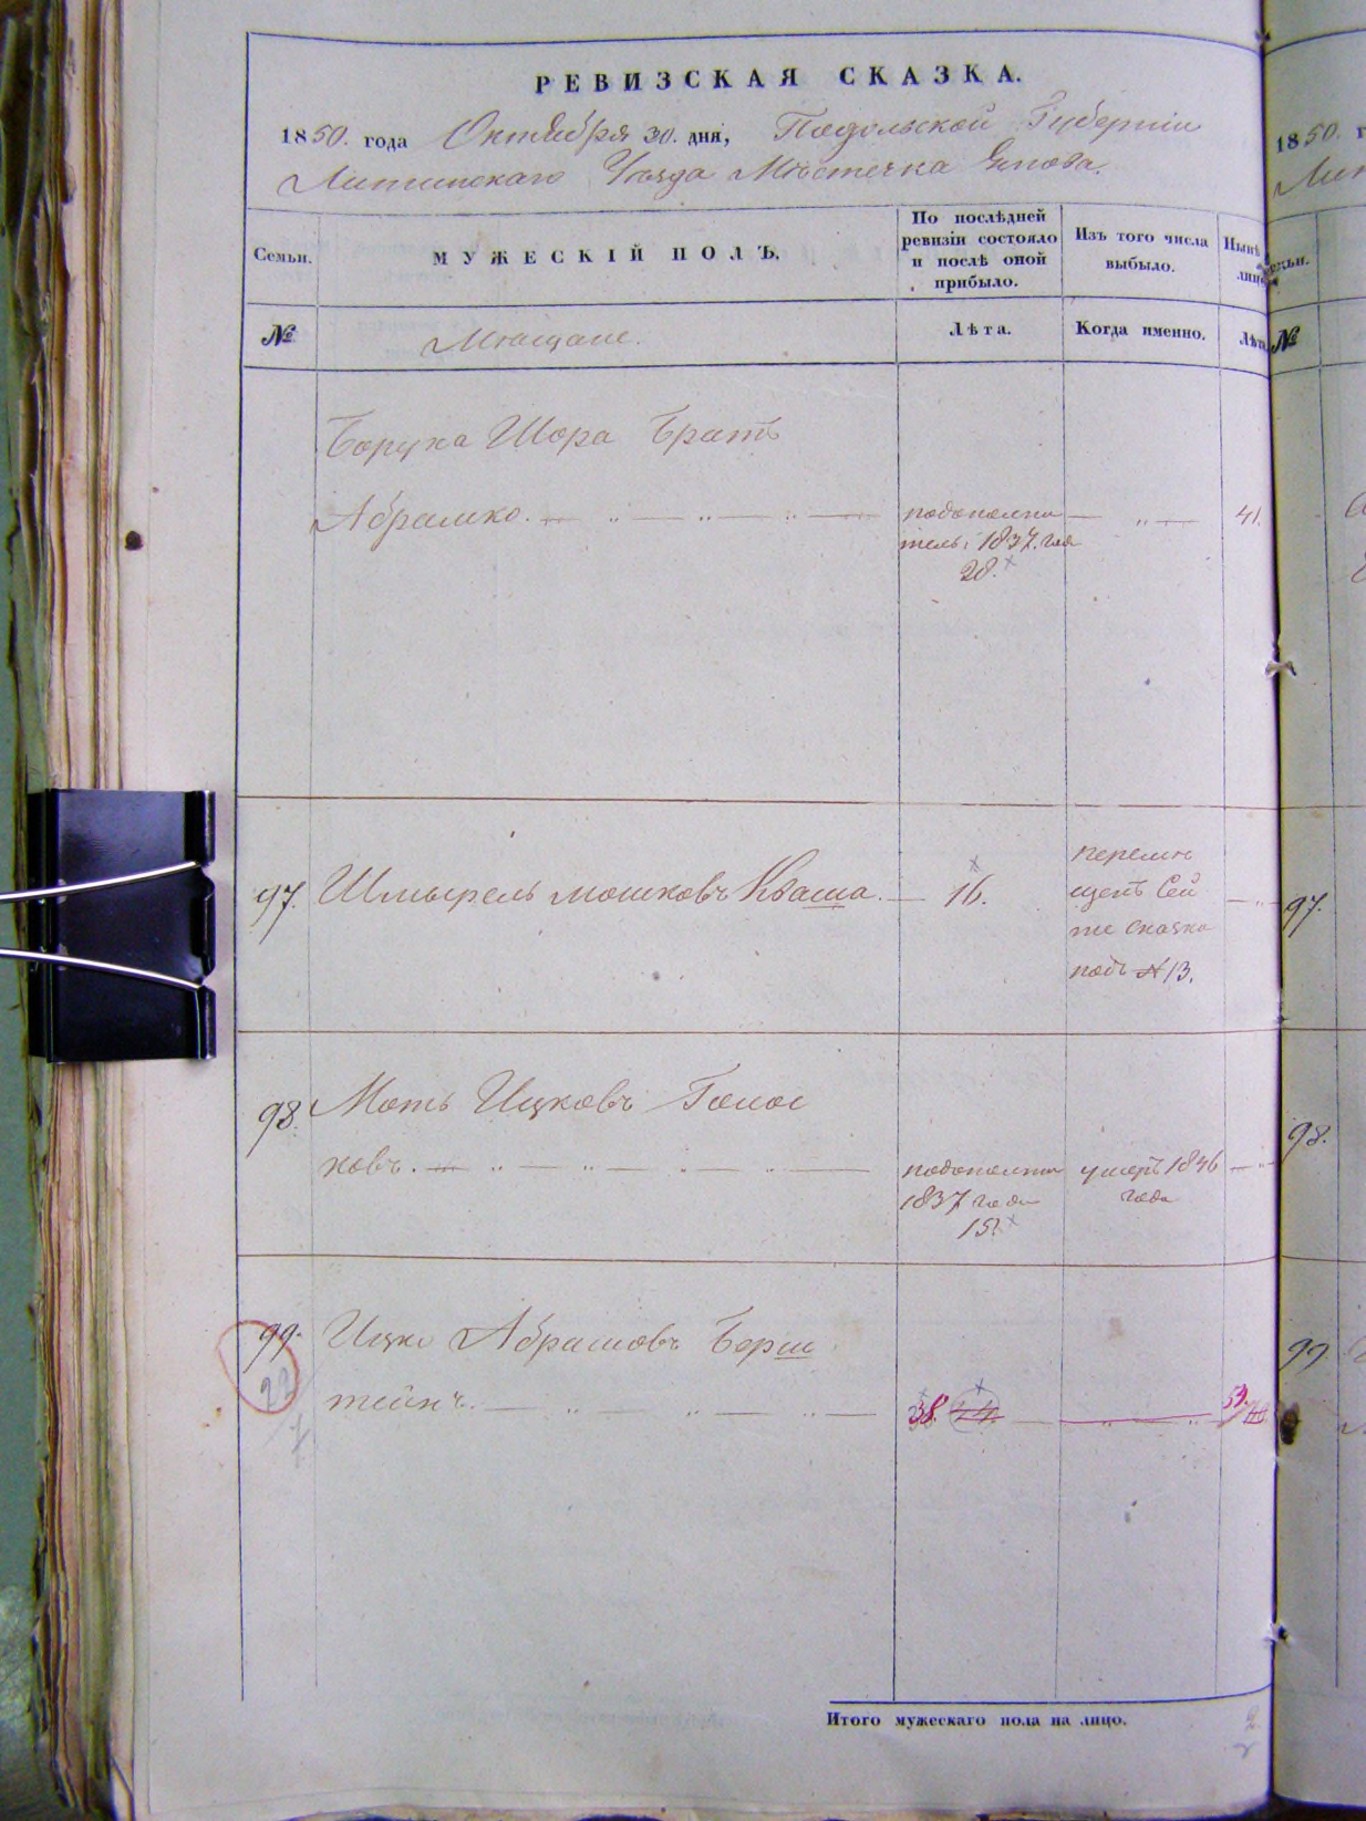 РЕВИЗСКАЯ СКАЗКА.
1850. года Октября 30. дня, Подольской Губернии
Литинскаго Уѣзда Мѣстечка Янова.
Семьи.
МУЖЕСКІЙ ПОЛЪ.
По послѣдней ревизіи состояло и послѣ оной прибыло.
Изъ того числа выбыло.
Нынѣ лице
№
Мѣщане.
Лѣта.
Когда именно.
Лѣта
Боруха Шора Братъ
Абрамко. 41.
1837. года
28.
97. Шмырель Мошковъ Кваша. 16.
перемѣ
щенъ Сей
же сказки
подъ № 13.
98. Моть Ицковъ Голос
ковъ. умеръ 1846
1837 года года
15.
99. Ицко Абрамовъ Берш
тейнъ. 38.
Итого мужескаго пола на лицо.
1850. г
Лит
№
97.
98.
99